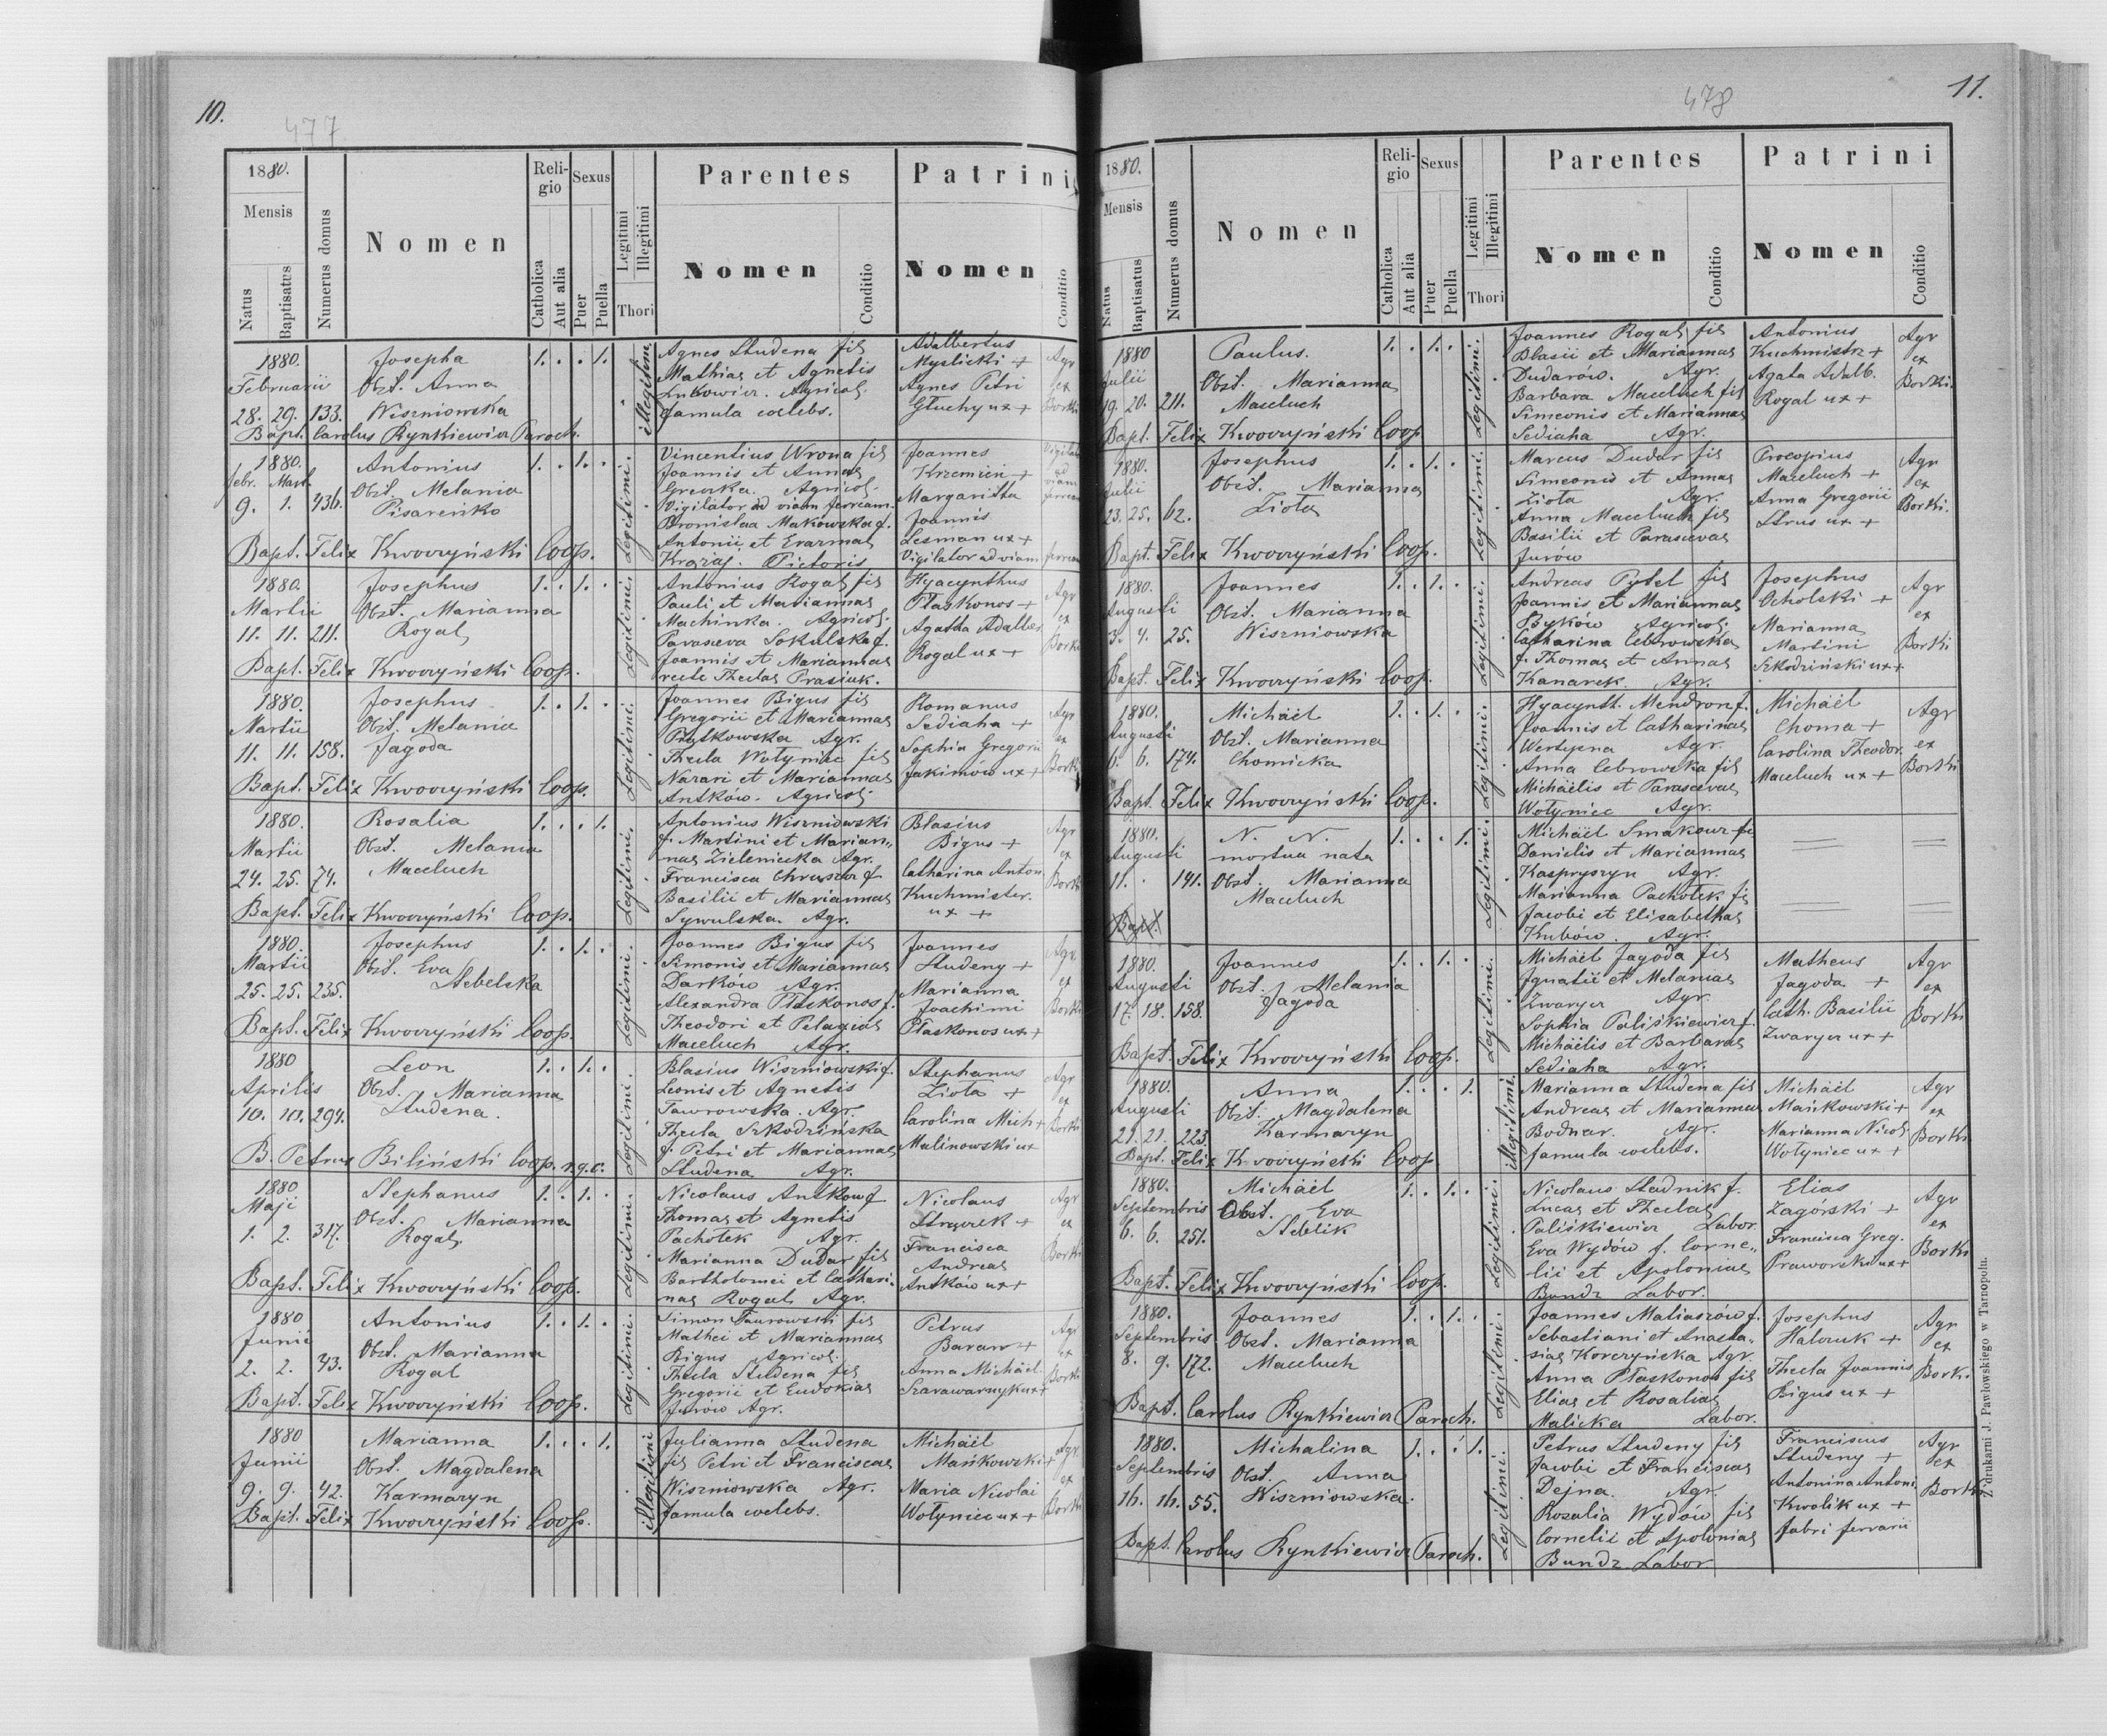 10.
477
1880.
Mensis
Natus
Baptisatus
Numerus domus
Nomen
Religio
Catholica
Aut alia
Sexus
Puer
Puella
Legitimi
Illegitimi
Thori
Parentes
Nomen
Conditio
Patrini
Nomen
Conditio
1880.
Februarii
28. 29. 133.
Josepha
Obst. Anna
Wiszniowska
1. . . 1.
illegitimi
Agnes Studena fil
Mathiae et Agnetis
Łukowicz. Agricol.
famula coelebs.
Adalbertus
Myslicki +
Agnes Petri
Głuchy ux +
Agr
ex
Borki
Bapt. Carolus Rynkiewicz Paroch.
1880.
febr. Mart.
9. 1. 436.
Antonius
Obst. Melania
Pisareńko
1. . 1. .
Legitimi.
Vincentius Wrona fil
Joannis et Annae
Greczka. Agricol.
Vigilator ad viam ferream.
Bronislaa Makowska f.
Antonii et Erazmae
Krąząj. Pictoris
Joannes
Krzemień +
Margaritta
Joannis
Lesman ux +
Vigilator ad viam ferream
Vigilator
ad
viam
ferream
Bapt. Felix Kwoczyński Coop.
1880.
Martii
11. 11. 211.
Josephus
Obst. Marianna
Rogal
1. . 1. .
Legitimi.
Antonius Rogal fil
Pauli et Mariannae
Machinka. Agricol.
Parasceva Sokulska f.
Joannis et Mariannae
recte Theclae Prasiuk.
Hyacynthus
Płaskonos +
Agatha Adalber
Rogal ux +
Agr
ex
Borki
Bapt. Felix Kwoczyński Coop.
1880.
Martii
11. 11. 158.
Josephus
Obst. Melania
Jagoda
1. . 1. .
Legitimi.
Joannes Bigus fil
Gregorii et Mariannae
Prutkowska Agr.
Thecla Wołyniec fil
Nazarii et Mariannae
Antków. Agricol.
Romanus
Sediaha +
Sophia Gregorii
Jakimów ux +
Agr
ex
Borki
Bapt. Felix Kwoczyński Coop.
1880.
Martii
24. 25. 74.
Rosalia
Obst. Melania
Maceluch
1. . . 1.
Legitimi.
Antonius Wiszniowski
f. Martini et Marian„
nae Zieleniecka Agr.
Francisca Chruszcz f
Basilii et Mariannae
Sywulska. Agr.
Blasius
Bigus +
Catharina Anton
Kuchmister.
ux +
Agr
ex
Borki
Bapt. Felix Kwoczyński Coop.
1880.
Martii
25. 25. 235.
Josephus
Obst. Eva
Stebelska
1. . 1. .
Legitimi.
Joannes Bigus fil
Simonis et Mariannae
Darków Agr.
Alexandra Płaskonos f.
Theodori et Pelagiae
Maceluch Agr.
Joannes
Studeny +
Marianna
Joachimi
Płaskonos ux +
Agr
ex
Borki
Bapt. Felix Kwoczyński Coop.
1880
Aprilis
10. 10. 294.
Leon
Obst. Marianna
Studena.
1. . 1. .
Legitimi.
Blasius Wiszniowski f.
Leonis et Agnetis
Tawrowska. Agr.
Thecla Szkodzińska
f. Petri et Mariannae
Studena Agr.
Stephanus
Ziota +
Carolina Mich +
Malinowski ux
Agr
ex
Borki
B. Petrus Biliński Coop. r.g.c.
1880
Maji
1. 2. 317.
Stephanus
Obst. Marianna
Rogal
1. . 1. .
Legitimi.
Nicolaus Antkow f
Thomae et Agnetis
Pachołek Agr.
Marianna Dudar fil
Bartholomei et Cathari-
nae Rogal Agr.
Nicolaus
+
Francisca
Andreae
Antków ux +
Agr
ex
Borki
Bapt. Felix Kwoczyński Coop.
1880
Junii
2. 2. 43.
Antonius
Obst. Marianna
Rogal
1. . 1. .
Legitimi.
Simon Taurowski fil
Mathei et Mariannae
Bigus Agricol.
Thecla Studena fil
Gregorii et Eudokiae
Jurów Agr.
Petrus
Baran +
Anna Michael.
Szarawarnyk ux +
Agr
ex
Borki
Bapt. Felix Kwoczyński Coop.
1880
Junii
9. 9. 42.
Marianna
Obst. Magdalena
Karmazyn
1. . . 1.
illegitimi
Julianna Studena
fil Petri et Franciscae
Wiszniowska Agr.
famula coelebs.
Michaël
Mańkowski +
Maria Nicolai
Wołyniec ux +
Agr
ex
Borki
Bapt. Felix Kwoczyński Coop.
11.
478
1880.
Mensis
Natus
Baptisatus
Numerus domus
Nomen
Religio
Catholica
Aut alia
Sexus
Puer
Puella
Legitimi
Illegitimi
Thori
Parentes
Nomen
Conditio
Patrini
Nomen
Conditio
1880
Julii
19. 20. 211.
Paulus.
Obst. Marianna
Maceluch
1. . 1. .
Legitimi.
Joannes Rogal fil
Blasii et Mariannae
Dudarów. Agr.
Barbara Maceluch fil
Simeonis et Mariannae
Sediaha Agr.
Antonius
Kuchmistr +
Agata Adalb.
Rogal ux +
Agr
ex
Borki.
Bapt. Felix Kwoczyński Coop
1880.
Julii
23. 25. 62.
Josephus
Obst. Marianna
Ziota
1. . 1. .
Legitimi.
Marcus Dudar fil
Simeonis et Annae
Ziota Agr.
Anna Maceluch fil
Basilii et Parascevae
Jurów
Procopius
Maceluch +
Anna Gregorii
Strus ux +
Agr
ex
Borki.
Bapt. Felix Kwoczyński Coop.
1880.
Augusti
3. 4. 25.
Joannes
Obst. Marianna
Wiszniowska
1. . 1. .
Legitimi.
Andreas Pytel fil
Joannis et Mariannae
Byków Agricol.
Catharina Cebrowska
f. Thomae et Annae
Kanarek. Agr.
Josephus
Ocholski +
Marianna
Martini
Szkodziński ux +
Agr
ex
Borki
Bapt. Felix Kwoczyński Coop.
1880.
Augusti
6. 6. 174.
Michaël
Obst. Marianna
Chomicka
1. . 1. .
Legitimi.
Hyacynth. Mendron f.
Joannis et Catharinae
Wertypna Agr.
Anna Cebrowska fil
Michäelis et Parascevae
Wołyniec Agr.
Michaël
Choma +
Carolina Theodor.
Maceluch ux +
Agr
ex
Borki
Bapt. Felix Kwoczyński Coop.
1880.
Augusti
11. . 141.
N. N.
mortua nata
Obst. Marianna
Maceluch
1. . . 1.
Legitimi.
Michaël Smakour fil
Danielis et Mariannae
Kaspryszyn Agr.
Marianna Pachołek fil
Jacobi et Elisabethae
Kubów. Agr.
Bapt.
1880.
Augusti
17. 18. 158.
Joannes
Obst. Melania
Jagoda
1. . 1. .
Legitimi.
Michaël Jagoda fil
Ignatii et Melaniae
Zwarycz Agr.
Sophia Paliśkiewicz f.
Michäelis et Barbarae
Sediaha Agr.
Matheus
Jagoda +
Cath. Basilii
Zwarycz ux +
Agr
ex
Borki
Bapt. Felix Kwoczyński Coop.
1880.
Augusti
21. 21. 223.
Anna
Obst. Magdalena
Karmazyn
1. . . 1.
illegitimi.
Marianna Studena fil
Andreae et Mariannae
Bodnar. Agr.
famula coelebs.
Michaël
Mańkowski +
Marianna Nicol.
Wołyniec ux +
Agr
ex
Borki
Bapt. Felix Kwoczyński Coop
1880.
Septembris
6. 6. 251.
Michaël
Obst. Eva
Steblik
1. . 1. .
Legitimi.
Nicolaus Stadnik f.
Lucae et Theclae
Paliśkiewicz Labor.
Eva Wydów f. Corne„
lii et Apoloniae
Bundz Labor.
Elias
Zagórski +
Francisca Greg.
Praworski ux +
Agr
ex
Borki
Bapt. Felix Kwoczyński Coop.
1880.
Septembris
8. 9. 172.
Joannes
Obst. Marianna
Maceluch
1. . 1. .
Legitimi.
Joannes Maliaszów f.
Sebastiani et Anasta„
siae Korczyńska Agr.
Anna Płaskonos fil
Eliae et Rosaliae
Malicka Labor.
Josephus
Halczuk +
Thecla Joannis
Bigus ux +
Agr
ex
Borki.
Bapt. Carolus Rynkiewicz Paroch.
1880.
Septembris
16. 16. 55.
Michalina
Obst. Anna
Wiszniowska.
1. . . 1.
Legitimi.
Petrus Studeny fil
Jacobi et Franciscae
Dejna. Agr.
Rosalia Wydów fil
Cornelii et Apoloniae
Bundz Labor
Franciscus
Studeny +
Antonina Antoni
Kwolik ux +
fabri ferrarii
Agr
ex
Borki
Bapt. Carolus Rynkiewicz Paroch.
Z drukarni J. Pawłowskiego w Tarnopolu.